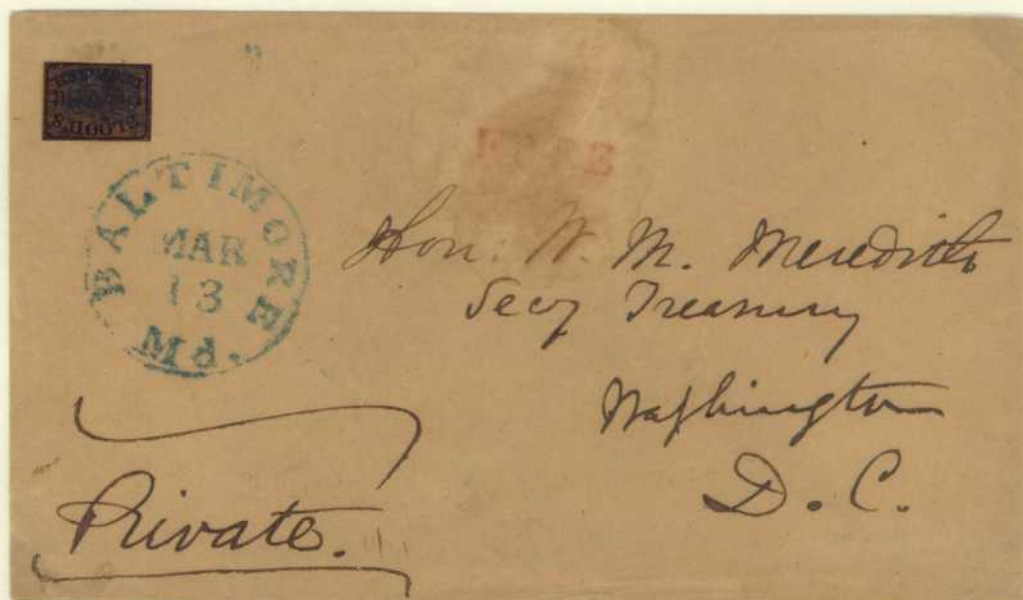 FREE
BALTIMORE Md.
MAR
13
Hon. W. M. Meredith
Secy Treasury
Washington
D. C.
Private.